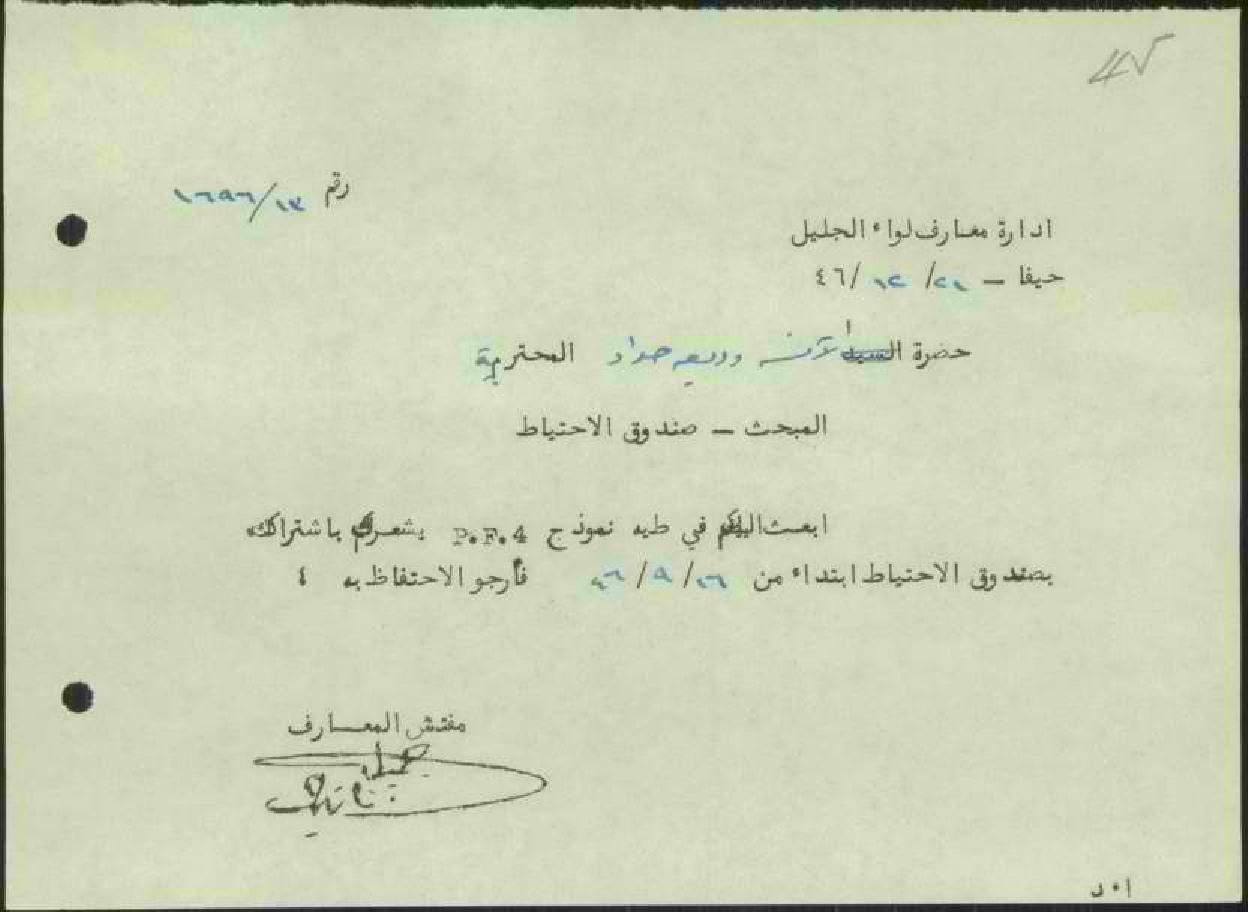 رقم ١٦٩٦/١٣
ادارة معارف لواء الجليل
حيفا — ٢١/ ١٢ /٤٦
حضرة الآنسه وديعه حداد المحترمة
المبحث — صندوق الاحتياط
ابعث اليك في طيه نموذج P.F.4 يشعرك باشتراكك
بصندوق الاحتياط ابتداء من ١٦/ ٩ /٤٦ فأرجو الاحتفاظ به ؛
مفتش المعارف
ا٠د